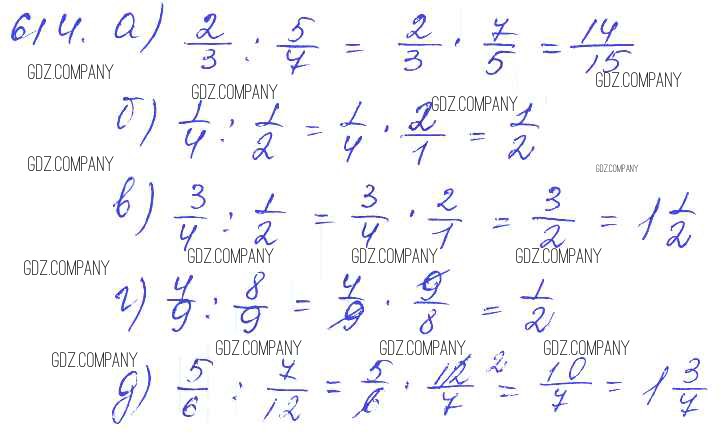 614. а) 2/3 : 5/7 = 2/3 · 7/5 = 14/15
GDZ.COMPANY GDZ.COMPANY
GDZ.COMPANY GDZ.COMPANY
б) 1/4 : 1/2 = 1/4 · 2/1 = 1/2
GDZ.COMPANY GDZ.COMPANY
в) 3/4 : 1/2 = 3/4 · 2/1 = 3/2 = 1 1/2
GDZ.COMPANY GDZ.COMPANY GDZ.COMPANY GDZ.COMPANY
г) 4/9 : 8/9 = 4/9 · 9/8 = 1/2
GDZ.COMPANY GDZ.COMPANY GDZ.COMPANY GDZ.COMPANY
д) 5/6 : 7/12 = 5/6 · 12/7 2 = 10/7 = 1 3/7